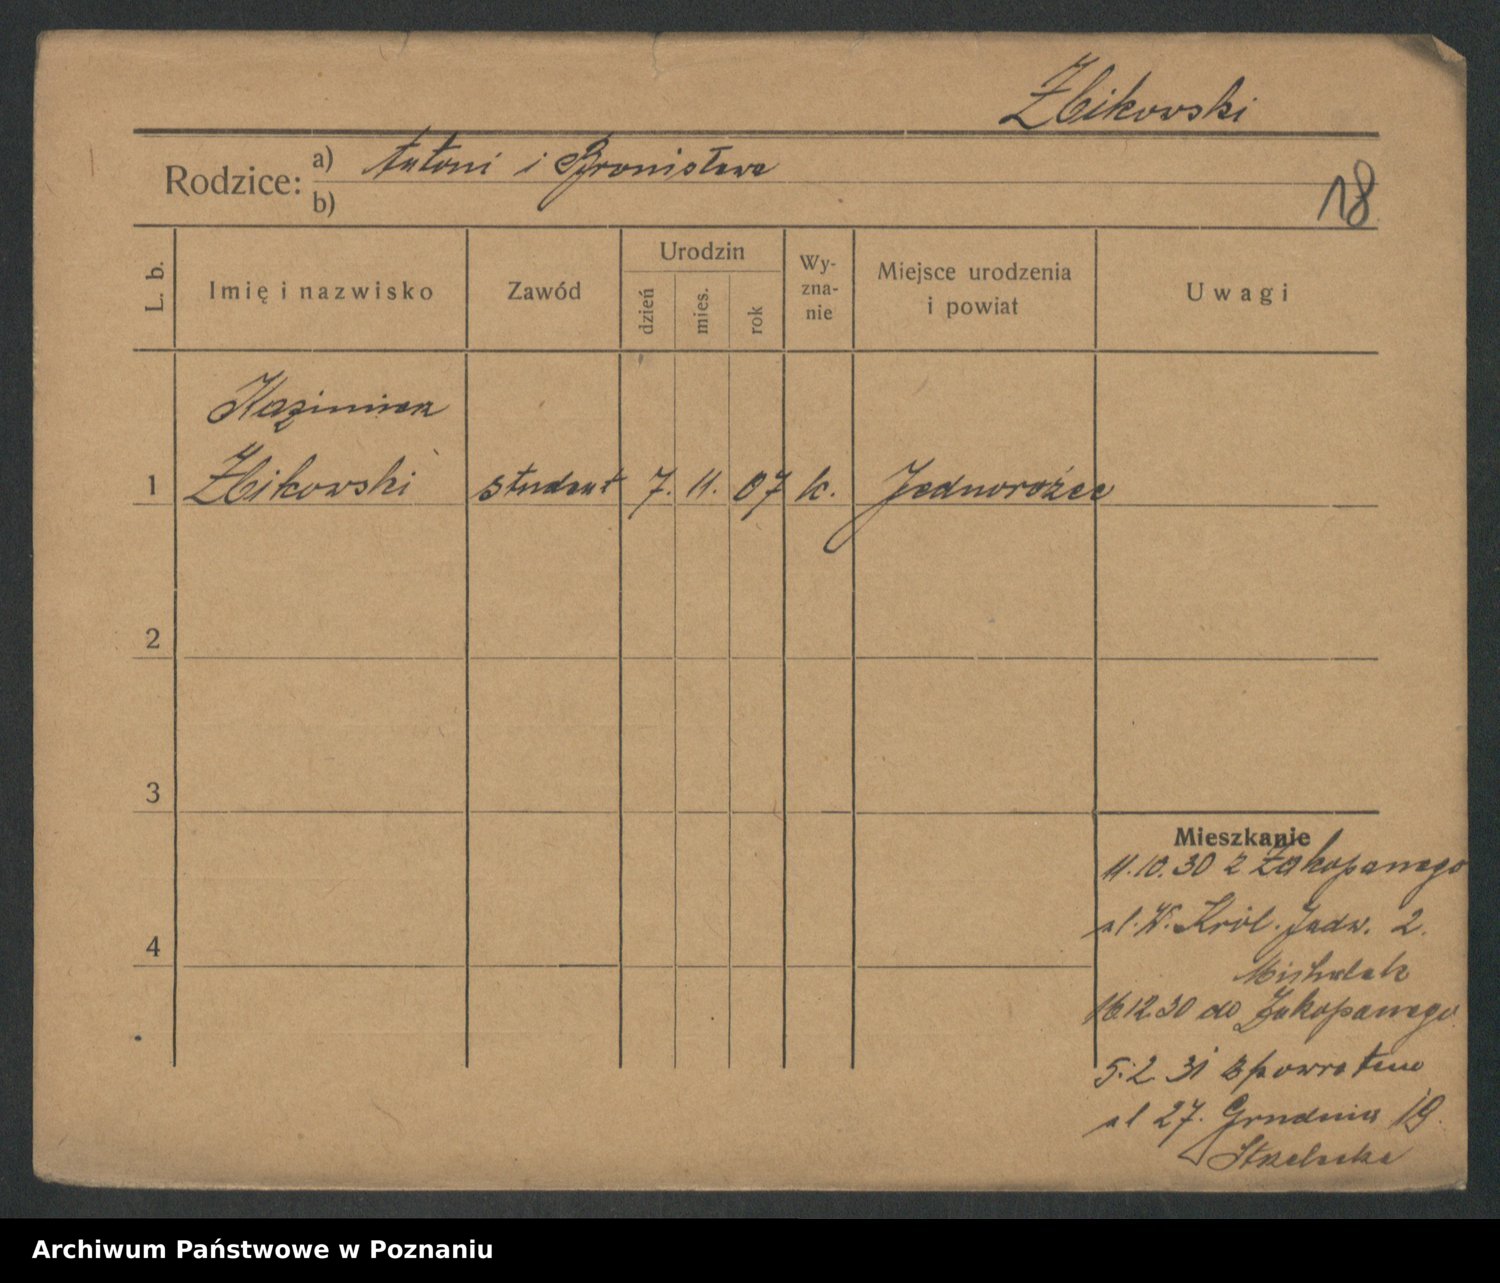 Żbikowski
Rodzice: a) Antoni i Bronisława
b)
18
L. b.
Imię i nazwisko
Zawód
Urodzin
dzień
mies.
rok
Wy-
zna-
nie
Miejsce urodzenia
i powiat
Uwagi
Kazimierz
1 Żbikowski student 7. 11. 07 k. Jednorożec
2
3
4
Mieszkanie
11.10.30 z Zakopanego
ul. W. Król. Jadw. 2.
16.12.30 do Zakopanego
5.2.31 z powrotem
ul 27. Grudnia 19.
Strzelecka
Archiwum Państwowe w Poznaniu